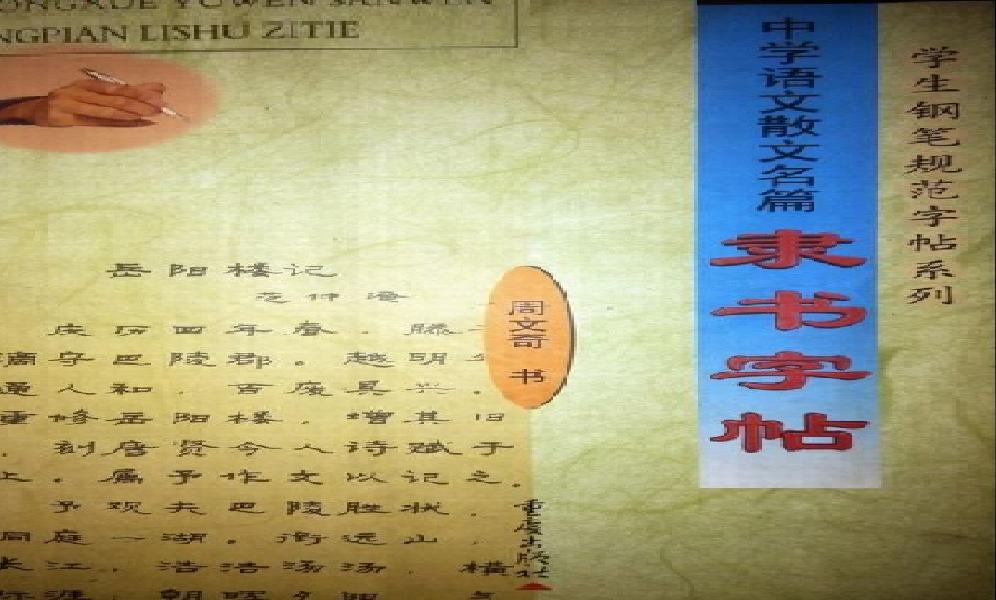 ONGXUE YUWEN SANWEN
NGPIAN LISHU ZITIE
学生钢笔规范字帖系列
中学语文散文名篇
隶书字帖
周文奇 书
岳阳楼记
范仲淹
庆历四年春，滕
谪守巴陵郡。越明
通人和，百废具兴。
重修岳阳楼，增其旧
，刻唐贤今人诗赋于
上。属予作文以记之。
予观夫巴陵胜状，
洞庭一湖。衔远山，
长江，浩浩汤汤，横
际涯，朝晖夕阴，气